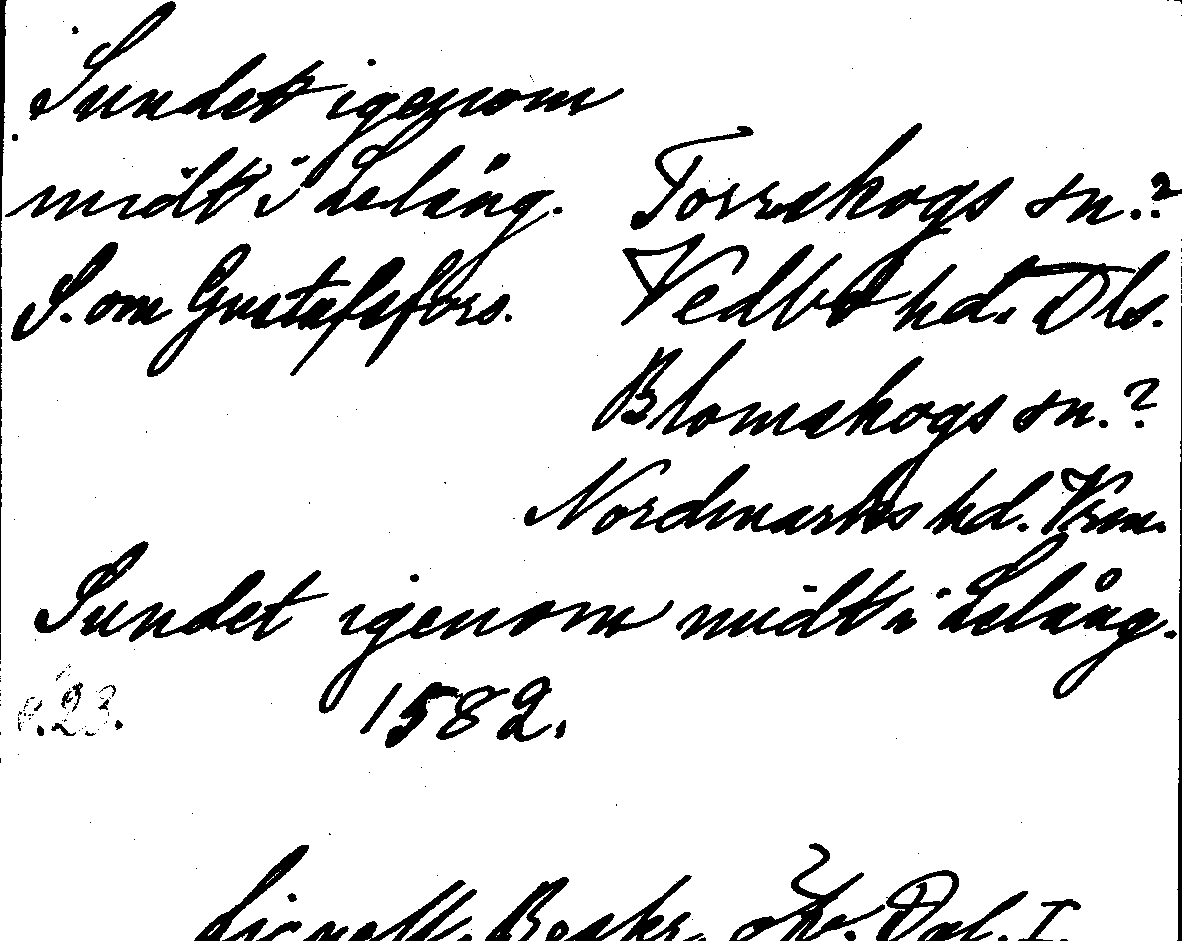 Sundet igenom
midt i Lelång. Torrskogs sn.?
S. om Gustafsfors. Vedbo hd. Dls.
Blomskogs sn.?
Nordmarks hd. Vrm.
Sundet igenom midt i Lelång.
s. 23. 1582.
Lignell, Beskr. öfv. Dal. I.